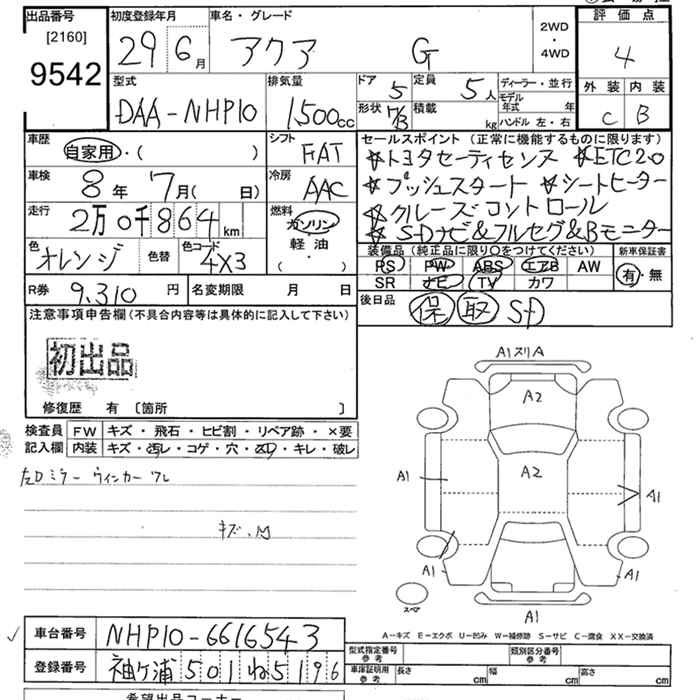 出品番号
[2160]
9542
初度登録年月
29 6月
車名・グレード
アクア G
2WD
・
4WD
評価点
4
型式
DAA-NHP10
排気量
1,500cc
ドア 5
定員 5人
ディーラー・並行
モデル年式 年
形状 5/3
積載 kg
ハンドル 左・右
外装 内装
C B
車歴
自家用・( )
シフト
FAT
車検
8年 7月( 日)
冷房
AAC
走行
2万0千864km
燃料
ガソリン
軽油
( )
色
オレンジ
色替
色コード
4X3
R券 9,310円
名変期限 月 日
セールスポイント (正常に機能するものに限ります)
☆トヨタセーフティセンス ☆ETC2.0
☆プッシュスタート ☆シートヒーター
☆クルーズコントロール
☆SDナビ&フルセグ&Bモニター
装備品 (純正品に限り○をつけてください)
新車保証書
PS PW ABS エアB AW
SR ナビ TV カワ
有・無
後日品
保 取 SD
注意事項申告欄(不具合内容等は具体的に記入して下さい)
初出品
修復歴 有 〔箇所 〕
検査員記入欄
FW キズ・飛石・ヒビ割・リペア跡・×要
内装 キズ・汚レ・コゲ・穴・凹・キレ・破レ
左Dミラー ウィンカー ワレ
キズ、凹
A1スリA
A2
A2
A1
A1
A1
A1
A1
スペア
A-キズ E-エクボ U-凹み W-補修跡 S-サビ C-腐食 XX-交換済
車台番号 NHP10-6616543
登録番号 袖ケ浦 501 ね 5196
型式指定番号 参考
類別区分番号 参考
車庫証明用 参考
長さ cm 幅 cm 高さ cm
希望出品コーナー